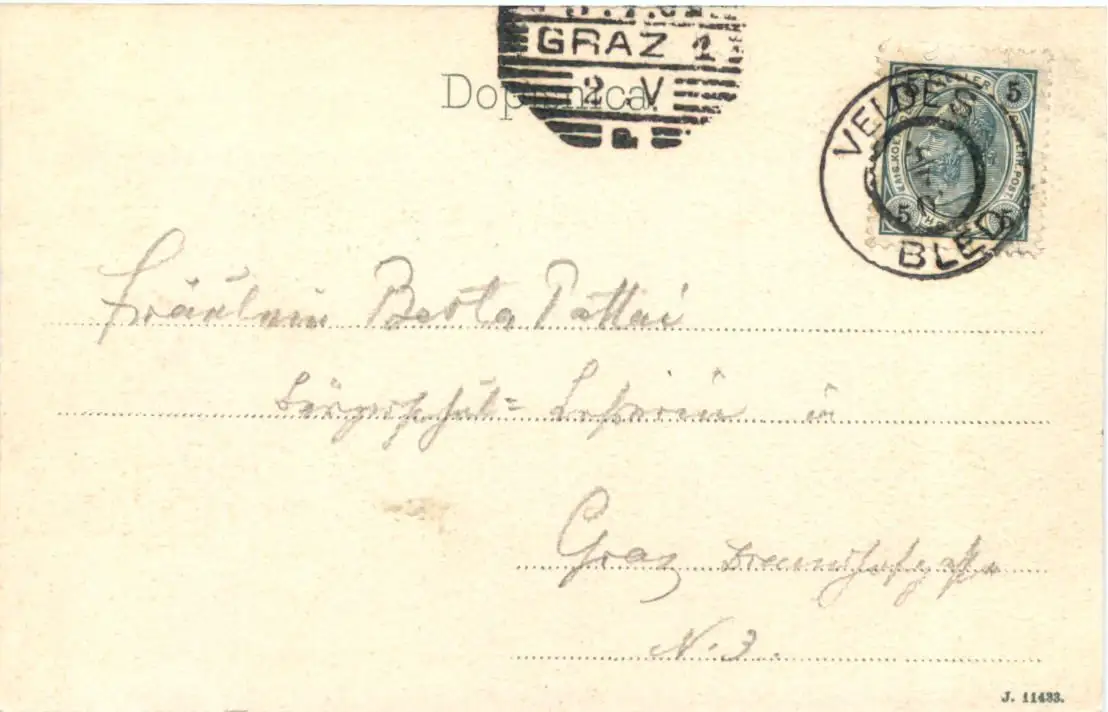 GRAZ 1
2 . V
Dopisnica.
VELDES
BLED
5
5 5
Fräulein Berta Pattai
Bürgerschul= Lehrerin in
Graz
N. 3.
J. 11433.